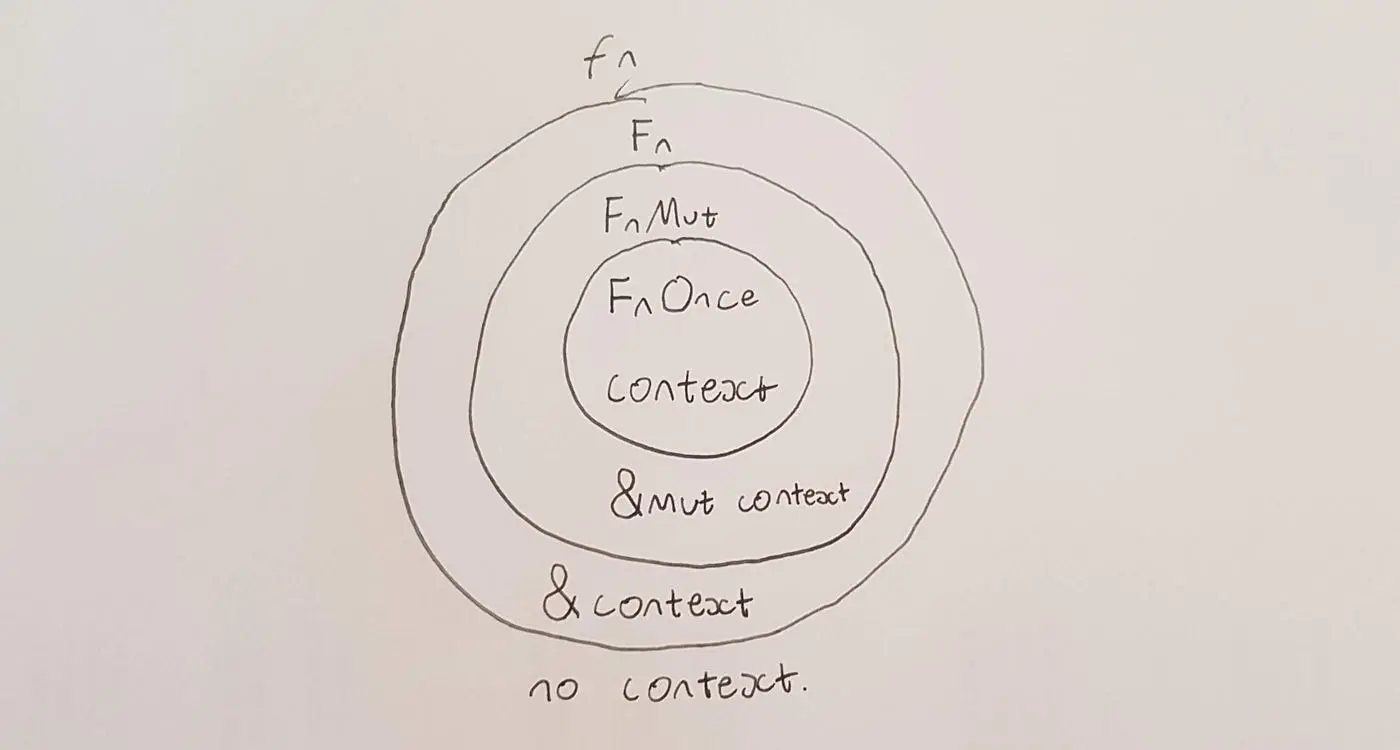 fn
Fn
FnMut
FnOnce
context
&mut context
&context
no context.